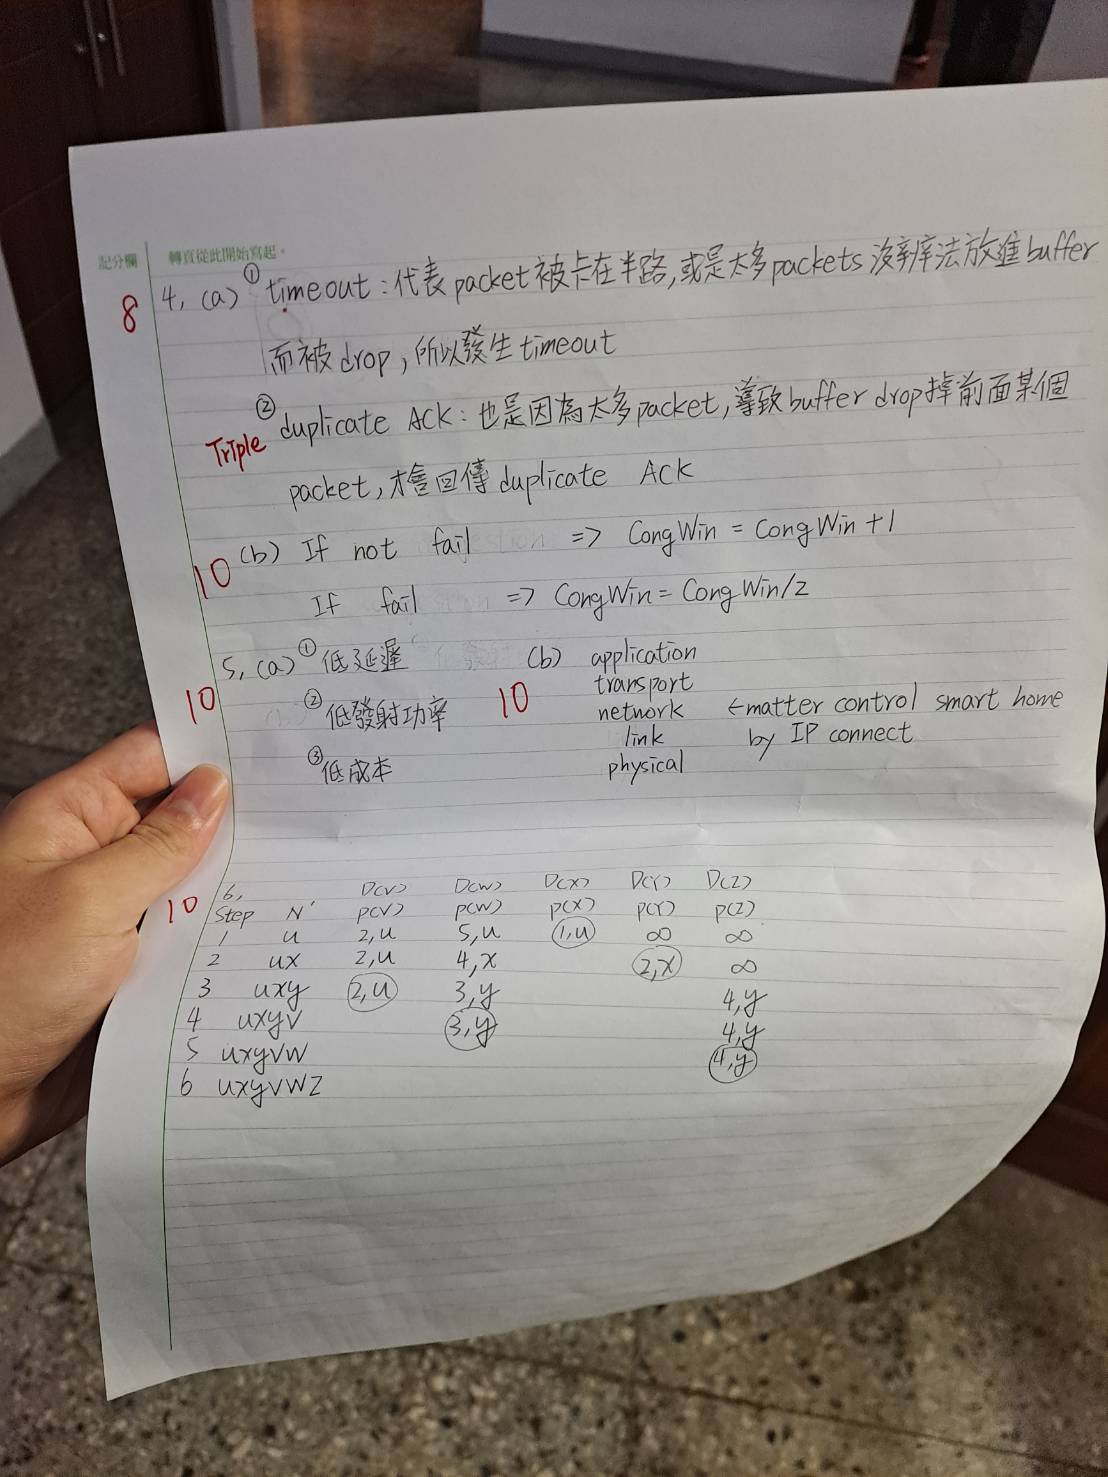 記分欄 轉頁從此開始寫起。
8 4, (a) ① timeout : 代表 packet 被卡在半路, 或是太多packets 沒辨庠法放進buffer
而被drop, 所以發生timeout
Triple ② duplicate ACK : 也是因為太多packet, 導致buffer drop掉前面某個
packet, 才會回傳duplicate ACK
10 (b) If not fail => CongWin = CongWin +1
If fail => CongWin = CongWin/2
10 5, (a) ① 低延遲
② 低發射功率
③ 低成本
10 (b) application
transport
network ←matter control smart home
link by IP connect
physical
10 6,
D(v) D(w) D(x) D(Y) D(Z)
Step N' p(v) p(w) p(x) p(Y) p(Z)
1 u 2,u 5,u 1,u ∞ ∞
2 ux 2,u 4,x 2,x ∞
3 uxy 2,u 3,y 4,y
4 uxyv 3,y 4,y
5 uxyvw 4,y
6 uxyvwz